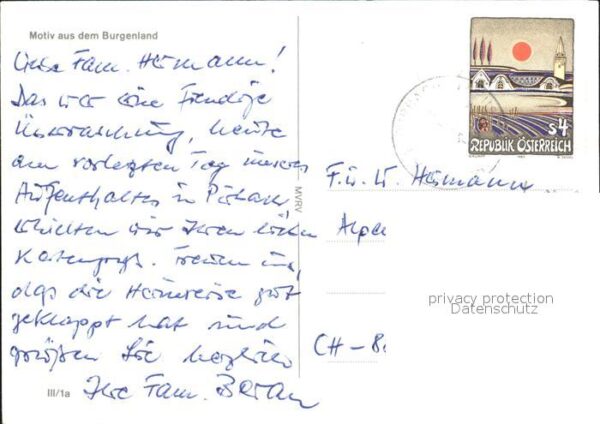 Motiv aus dem Burgenland
Liebe Fam. Hermann!
Das war eine Freudige
Überraschung, heute
am vorletzten Tag unseres
Aufenthaltes in
erhielten wir Ihren lieben
Kartengruß. Freuen uns,
daß die Heimreise gut
geklappt hat und
grüßen Sie herzlich
Ihre Fam. Beran
III/1a
MVRV
S4
REPUBLIK ÖSTERREICH
F. u. W. Hermann
Alpe
CH-8
privacy protection
Datenschutz